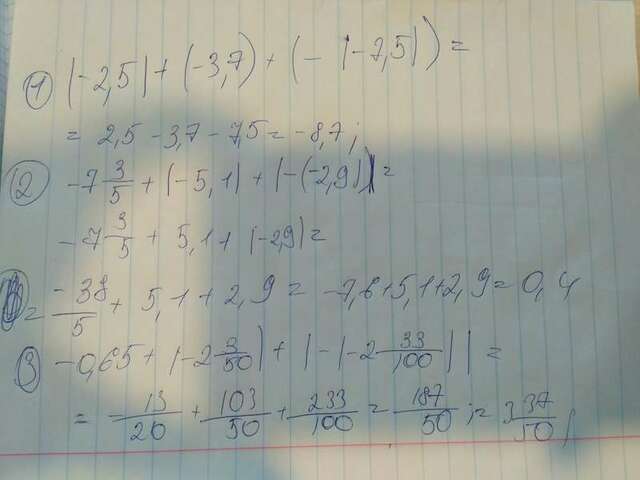 ① |-2,5| + (-3,7) + (- |-7,5|) =
= 2,5 - 3,7 - 7,5 = -8,7;
② -7 3/5 + |-5,1| + |-(-2,9)| =
-7 3/5 + 5,1 + |-2,9| =
= -38/5 + 5,1 + 2,9 = -7,6+5,1+2,9 = 0,4
③ -0,65 + |-2 3/50| + |-|-2 33/100|| =
= -13/20 + 103/50 + 233/100 = 187/50 ;= 3 37/50;